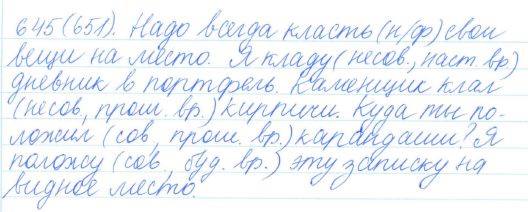 645(651). Надо всегда класть (н/ф) свои
вещи на место. Я кладу (несов., наст. вр.)
дневник в портфель. Каменщик клал
(несов., прош. вр.) кирпичи. Куда ты по-
ложил (сов., прош. вр.) карандаши? Я
положу (сов., буд. вр.) эту записку на
видное место.